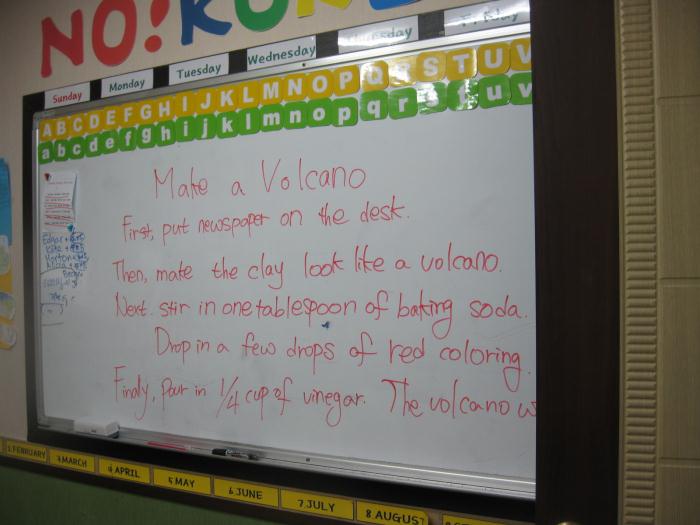 NO!KOR
Sunday Monday Tuesday Wednesday Thursday Friday
A B C D E F G H I J K L M N O P Q R S T U V
a b c d e f g h i j k l m n o p q r s t u v
Make a Volcano
First, put newspaper on the desk.
Then, make the clay look like a volcano.
Next. stir in one tablespoon of baking soda.
Drop in a few drops of red coloring.
Finaly, pour in 1/4 cup of vinegar. The volcano w
Edgar
2.FEBRUARY 3.MARCH 4.APRIL 5.MAY 6.JUNE 7.JULY 8.AUGUST